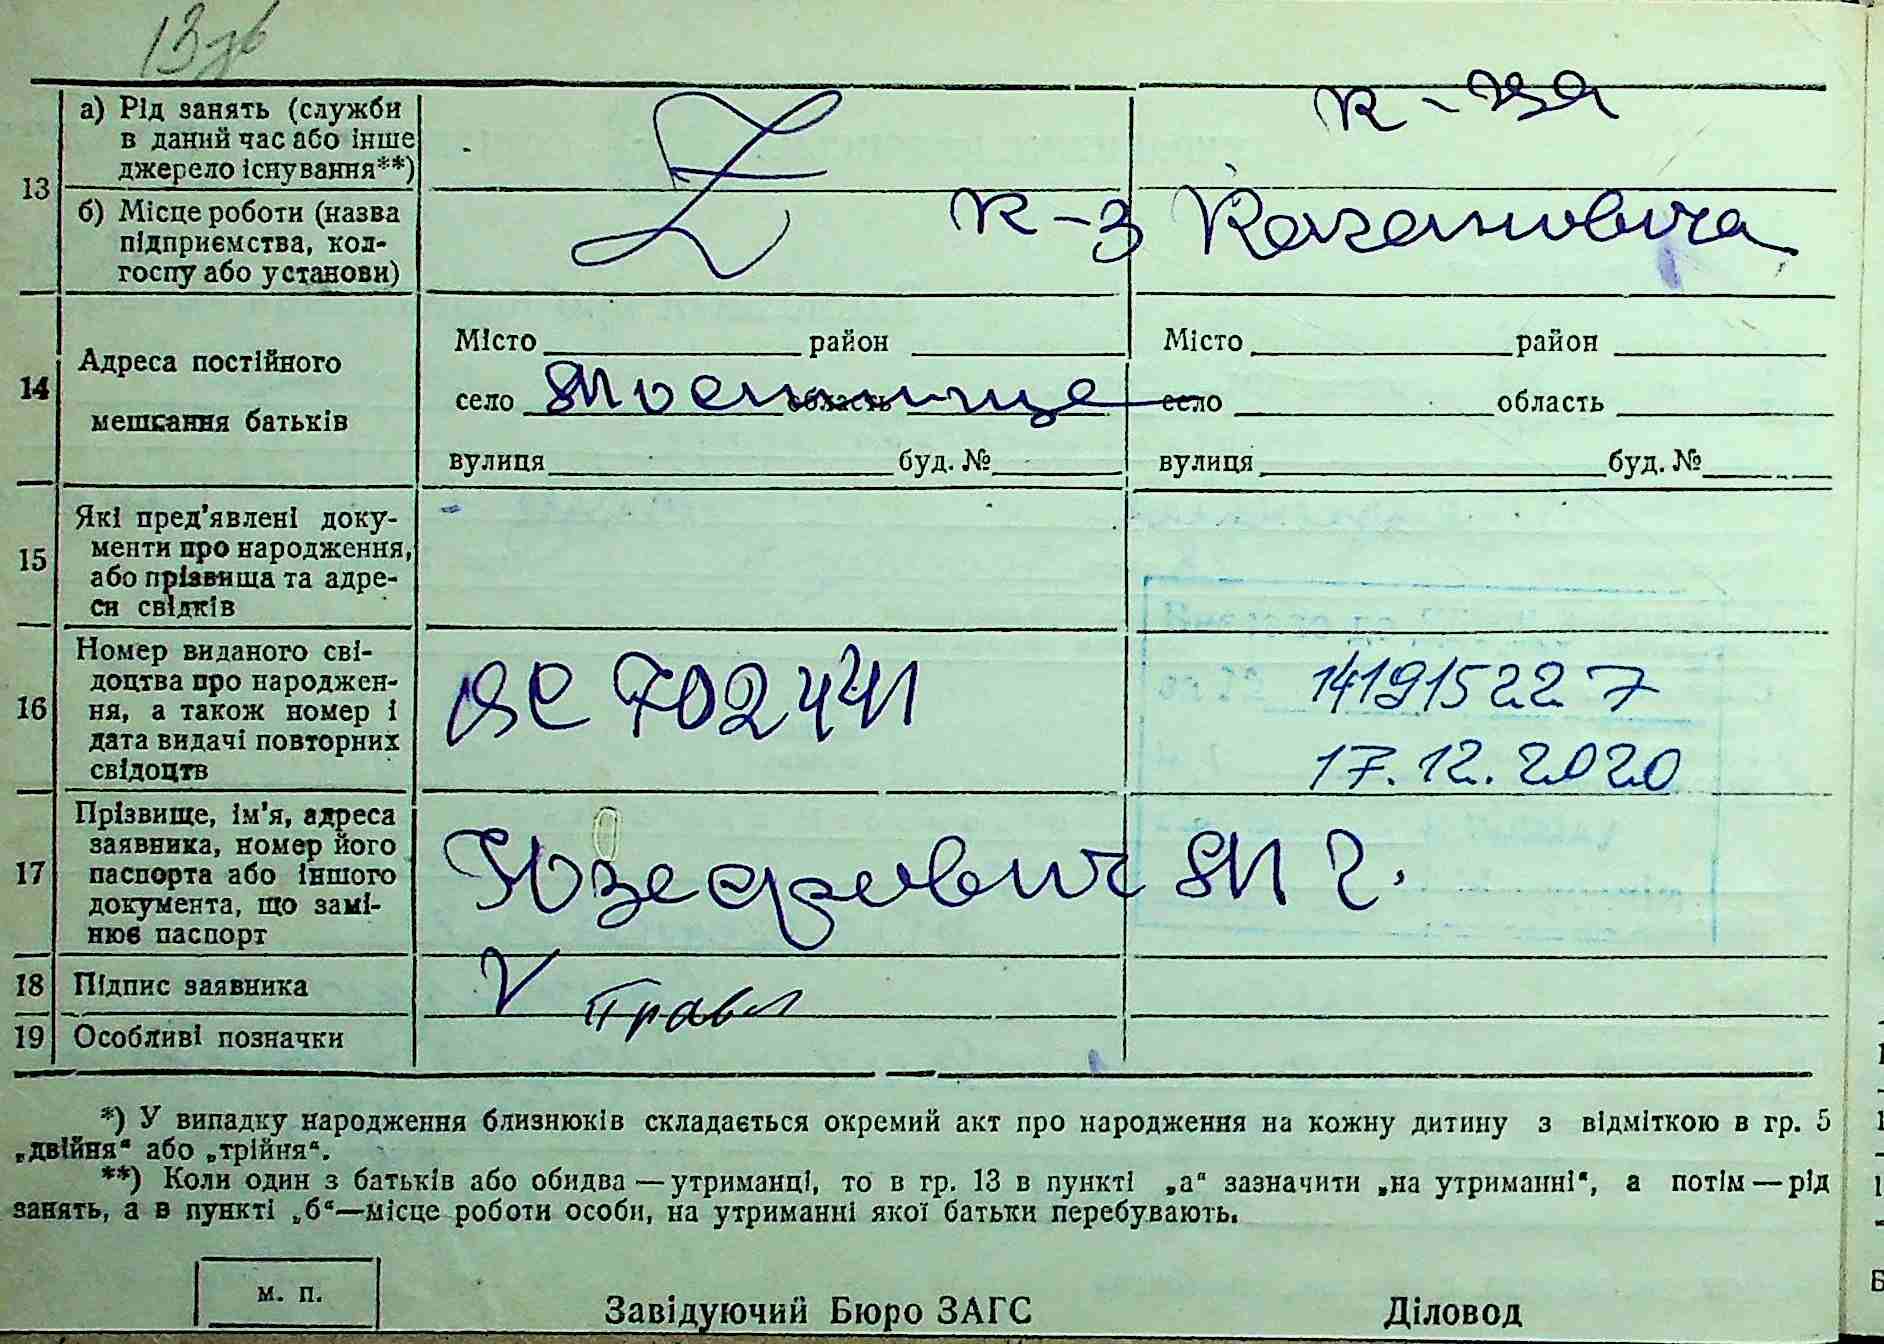 13зв
13
а) Рід занять (служби
в даний час або інше
джерело існування**)
к-ця
б) Місце роботи (назва
підприємства, кол-
госпу або установи)
к-з Кагановича
14
Адреса постійного
мешкання батьків
Місто район
село область
вулиця буд. №
Місто район
село область
вулиця буд. №
15
Які пред'явлені доку-
менти про народження,
або прізвища та адре-
си свідків
16
Номер виданого сві-
доцтва про народжен-
ня, а також номер і
дата видачі повторних
свідоцтв
ЯС 702441
1419152 2 7
17.12.2020
17
Прізвище, ім'я, адреса
заявника, номер його
паспорта або іншого
документа, що замі-
нює паспорт
Юзефович М Г.
18
Підпис заявника
V
19
Особливі позначки
*) У випадку народження близнюків складається окремий акт про народження на кожну дитину з відміткою в гр. 5
„двійня“ або „трійня“.
**) Коли один з батьків або обидва — утриманці, то в гр. 13 в пункті „а“ зазначити „на утриманні“, а потім — рід
занять, а в пункті „б“—місце роботи особи, на утриманні якої батьки перебувають.
м. п.
Завідуючий Бюро ЗАГС
Діловод